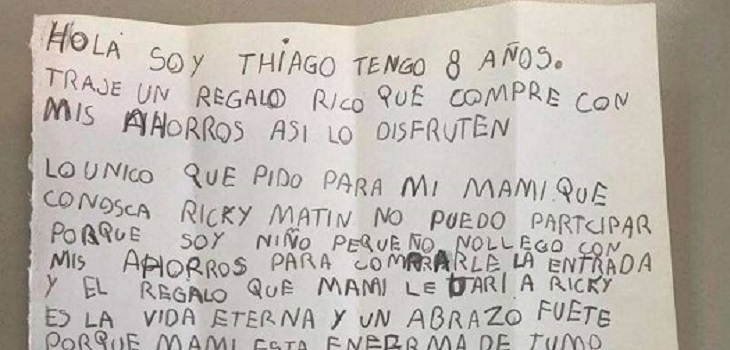 HOLA SOY THIAGO TENGO 8 AÑOS.
TRAJE UN REGALO RICO QUE COMPRE CON
MIS AHORROS ASI LO DISFRUTEN
LO UNICO QUE PIDO PARA MI MAMI QUE
CONOSCA RICKY MATIN NO PUEDO PARTCIPAR
PORQUE SOY NIÑO PEQUEÑO NOLLEGO CON
MIS AHORROS PARA COMPRARLE LA ENTRADA
Y EL REGALO QUE MAMI LE DARI A RICKY
ES LA VIDA ETERNA Y UN ABRAZO FUETE
PORQUE MAMI ESTA ENFERMA DE TUMO